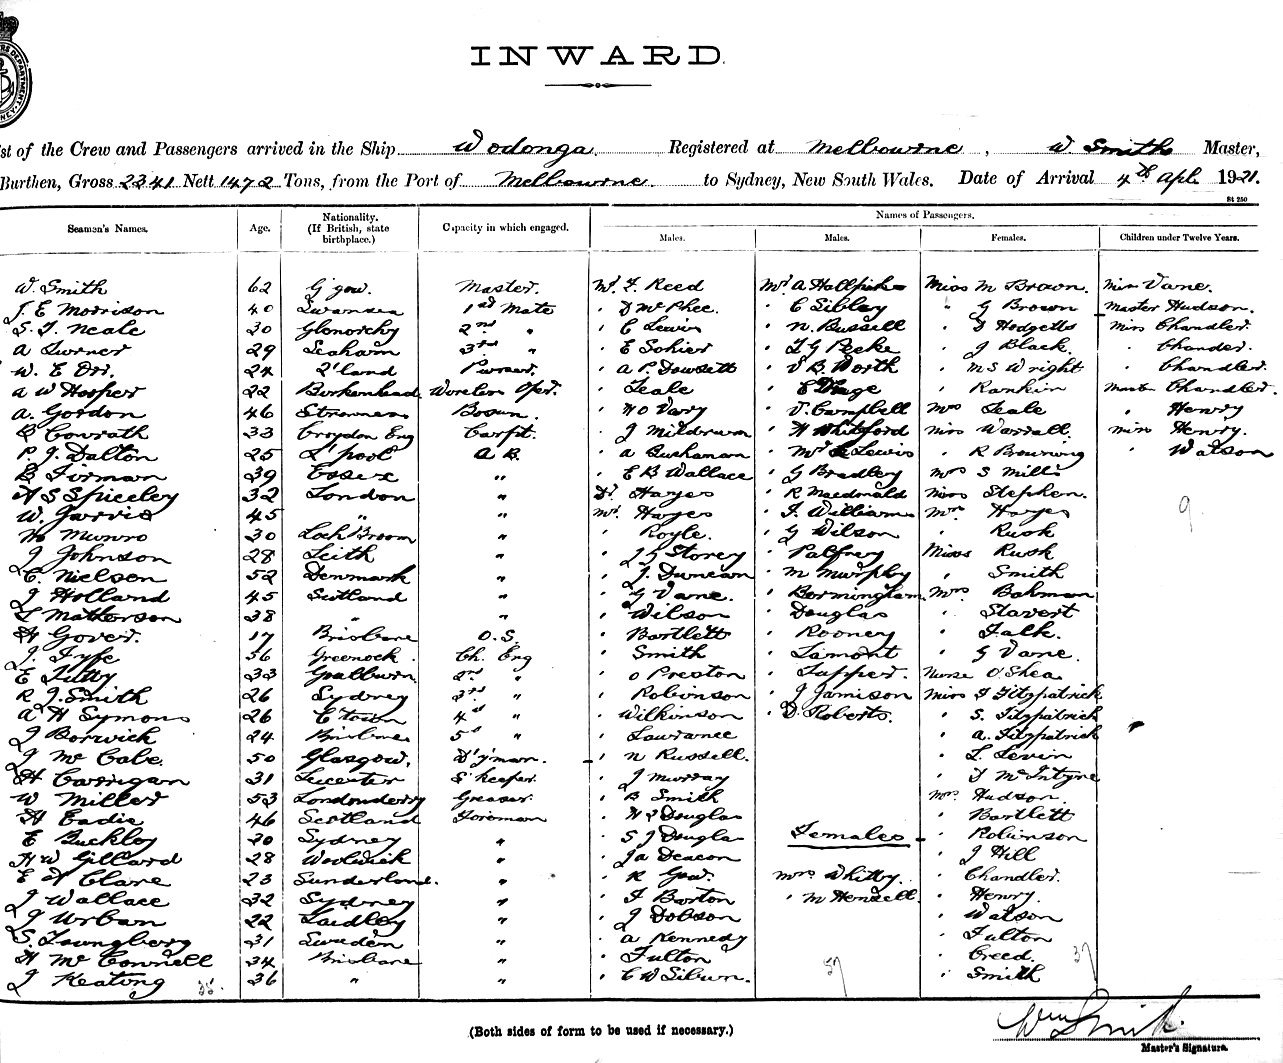 INWARD.
st of the Crew and Passengers arrived in the Ship Wodonga. Registered at Melbourne, W. Smith Master,
Burthen, Gross 2341 Nett 1472 Tons, from the Port of Melbourne. to Sydney, New South Wales. Date of Arrival 4th Apl. 1921.
St 250
Names of Passengers.
Seamen's Names. Age. Nationality. (If British, state birthplace.) Capacity in which engaged. Males. Males. Females. Children under Twelve Years.
W. Smith 62 G'gow. Master. Mr. F. Reed Mr A Miss M Brown. Miss Vane.
J. E Morrison 40 Swansea 1st Mate " D McPhee. " C Sibley " G Brown Master Hudson.
S. T. Neale 30 Glenorchy 2nd " " C Lewis " N. Russell " Hodgetts Miss Chandler.
A Turner 29 Seaham 3rd " " E Sohier " Peeke " J Black. " Chander.
W. E 24 Z'land Purser. " A P. Dowsett " S B. Worth " M S Wright " Chandler
A W Hooper 22 Birkenhead Wireless Oper. " Seale " " Rankin Master Chandler.
A. Gordon 46 Stromness Bosun. " " Campbell Mrs Seale " Henry
33 Croydon Eng Carpt. " J Mildrum " H Whitford Miss Miss Henry.
P. J. Dalton 25 L'pool A B. " A Buchanan " Mr Lewis " R Browning " Watson
B Firman 39 Essex " " E B Wallace " G Bradley Mrs S Mills
H S Spiceley 32 London " Dr. Hayes " R Macdonald Miss Stephen.
W. Jarvis 45 " " Mr. Hayes " Williams Mrs Hayes 9
Munro 30 Loch Broom " " Royle. " G Wilson " Rusk
J Johnson 28 Leith " " Storey " Palfrey Miss Rusk
C. Nielson 52 Denmark " " J. Duncan " M Murphy " Smith
J Holland 45 Scotland " " G Vane. " Bermingham Mrs Bakman
Matherson 38 " " " Wilson " Douglas " Stavert
H Gover. 17 Brisbane O. S. " Bartlett " Rooney " Falk.
J. Fyfe 56 Greenock Ch. Eng " Smith " Lamont " G Vane.
E Tilly 33 Goulburn 2nd " " O Preston " Tupper. Nurse O'Shea
R J. Smith 26 Sydney 3rd " " Robinson " J Jamison Miss Fitzpatrick
A H Symons 26 C'town 4th " " Wilkinson " D. Roberts. " S. Fitzpatrick
J Borwick 24 Brisbane 5th " " Lawrance " A. Fitzpatrick
J McCabe. 50 Glasgow. D'yman. " N Russell. " L. Levin
H Carrigan 31 Leicester S'keeper. " J Murray " McIntyre
W Miller 53 Londonderry Greaser. " B Smith Mrs. Hudson.
H Eadie 46 Scotland Foreman " Douglas " Bartlett
E Buckley 30 Sydney " " S J Douglas Females " Robinson
H W Gillard 28 Woolwich " " Jas Deacon " J Hill
E H Clare 23 Sunderland. " " R Gow. Mrs Whitby. " Chandler.
J Wallace 32 Sydney " " Barton " M Hensell. " Henry.
J Urban 22 Laidley " " J Dobson " Watson
S. Youngberg 31 Sweden " " A Kennedy " Fulton
H McConnell 34 Brisbane " " Fulton " Creed.
J Keating 35. 36 " " " C W Silburn. 57 " Smith 37
(Both sides of form to be used if necessary.)
Wm Smith.
Master's Signature.